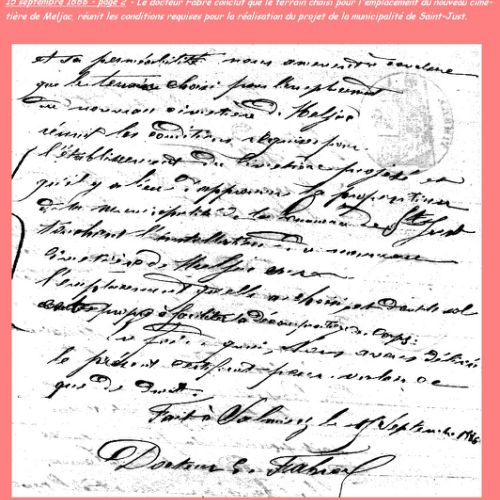 15 septembre 1886 - page 2 - Le docteur Fabre conclut que le terrain choisi pour l'emplacement du nouveau cime-
tière de Meljac, réunit les conditions requises pour la réalisation du projet de la municipalité de Saint-Just.
et sa perméabilité nous amènent à conclure
que le terrain choisi pour l'emplacement
du nouveau cimetière de Meljac
réunit les conditions requises pour
l'établissement du cimetière projeté et
qu'il y a lieu d'approuver la proposition
de la municipalité de la commune de St Just
touchant l'installation du nouveau
cimetière de Meljac sur
l'emplacement qu'elle a choisi et dont le sol
est propre à faciliter la décomposition des corps.
En foi de quoi, nous avons délivré
le présent certificat pour valoir ce
que de droit.
Fait à Salmiech le 15 Septembre 1886
Docteur E. Fabre